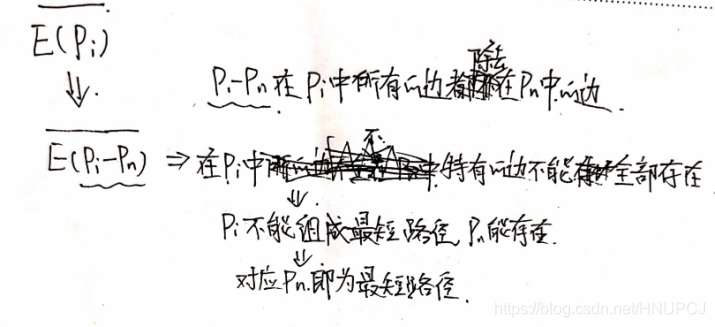 E(Pi)
⇓.
除去
Pi-Pn 在 Pi中所有的边都在Pn中的边.
E(Pi-Pn) ⇒ 在Pi中特有的边不能全部存在
⇓
Pi不能组成最短路径, Pn能存在.
⇓
对应Pn.即为最短路径.
https://blog.csdn.net/HNUPCJ